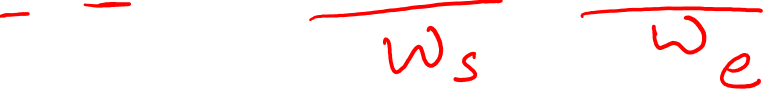 Ws We